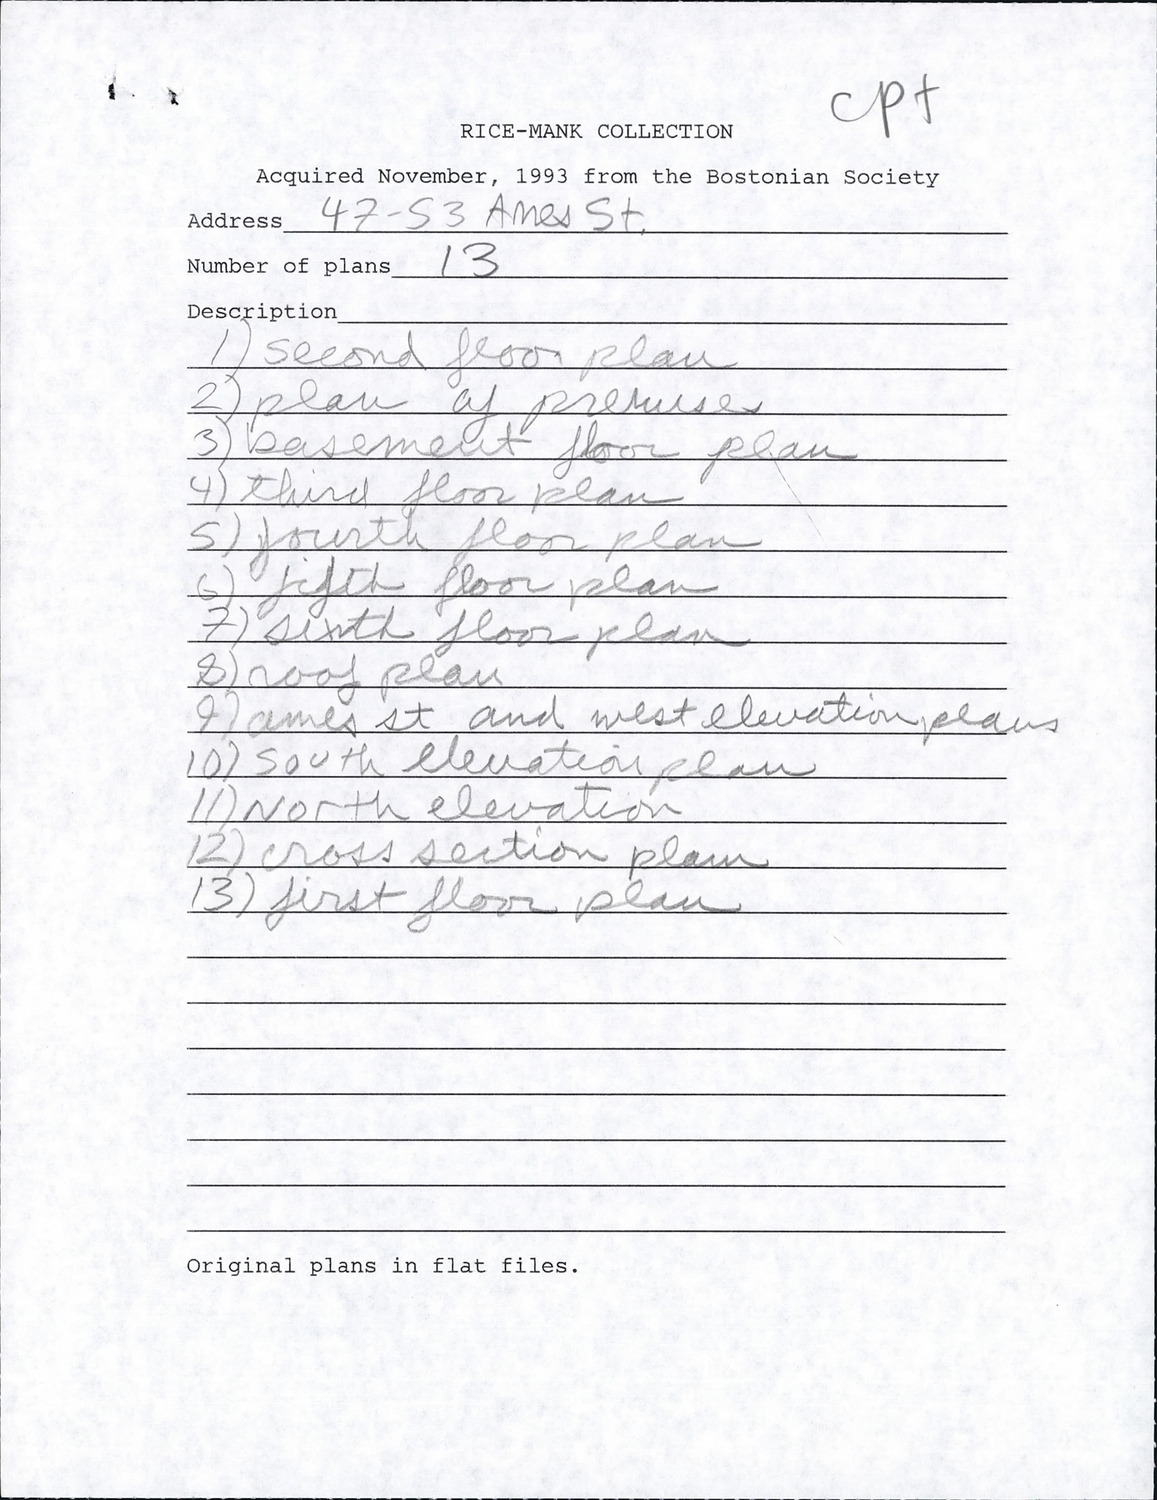 cpt
RICE-MANK COLLECTION
Acquired November, 1993 from the Bostonian Society
Address 47-53 Ames St.
Number of plans 13
Description
1) second floor plan
2) plan of premises
3) basement floor plan
4) third floor plan
5) fourth floor plan
6) fifth floor plan
7) sixth floor plan
8) roof plan
9) ames st and west elevation plans
10) South elevation plan
11) North elevation
12) cross section plan
13) first floor plan
Original plans in flat files.